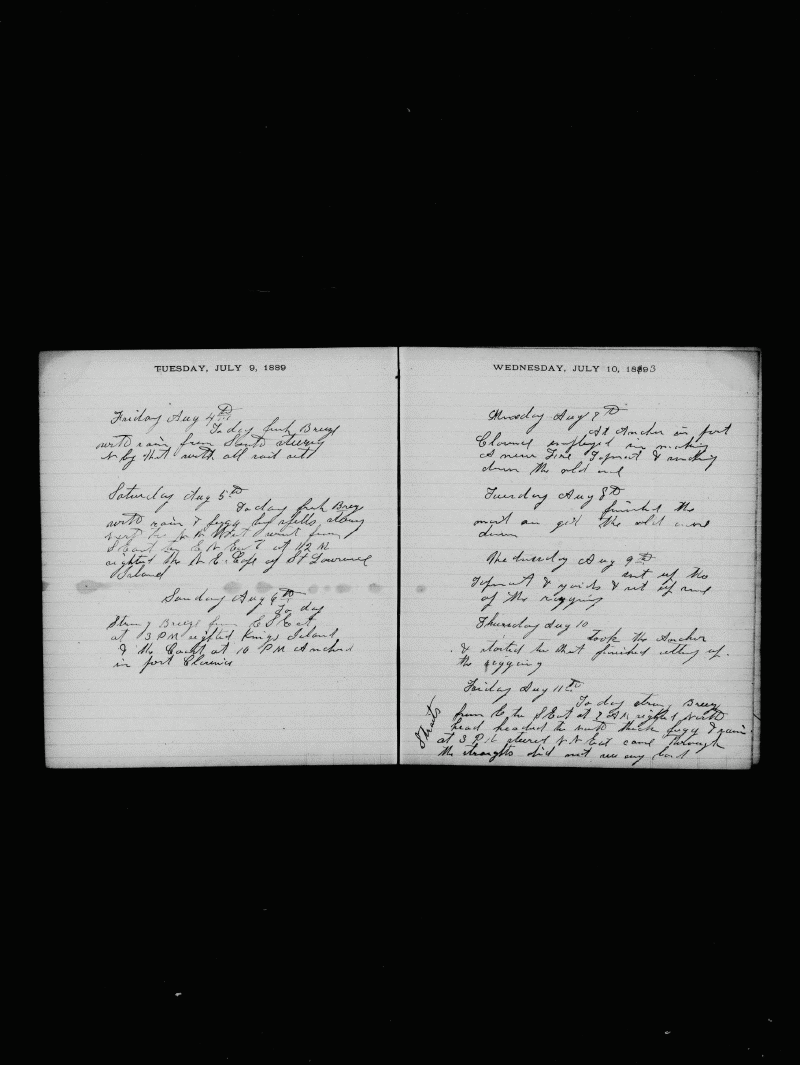 TUESDAY, JULY 9, 1889
Friday Aug 4th
To day fresh Breeze
with rain from South steering
N by West with all sail set
Saturday Aug 5th
To day fresh Breze
with rain & foggy by spells
West wind from
S East by E N East at 12 M
sighted the N E Cape of St Lawrence
Island
Sunday Aug 6th
To day
Strong Breeze from E S Est
at 3 PM sighted Kings Island
& the Coast at 10 PM Anchord
in port Clarence
WEDNESDAY, JULY 10, 18893
Monday Aug 7th
At Anchor in port
Clarence employed in making
a new Fore Topmast & sending
down the old one
Tuesday Aug 8th
finished the
mast an got the old one
down
Wednesday Aug 9th
sent up the
Topmast & yards & set up some
of the rigging
Thursday Aug 10
Took the Anchor
& started to the finished setting up
the rigging
Friday Aug 11th
To day strong Breeze
from E to S Est at 7 AM sighted
head headed to north thick foggy & rain
at 3 PM steered N N Est came through
the straights did not see any land
Straits